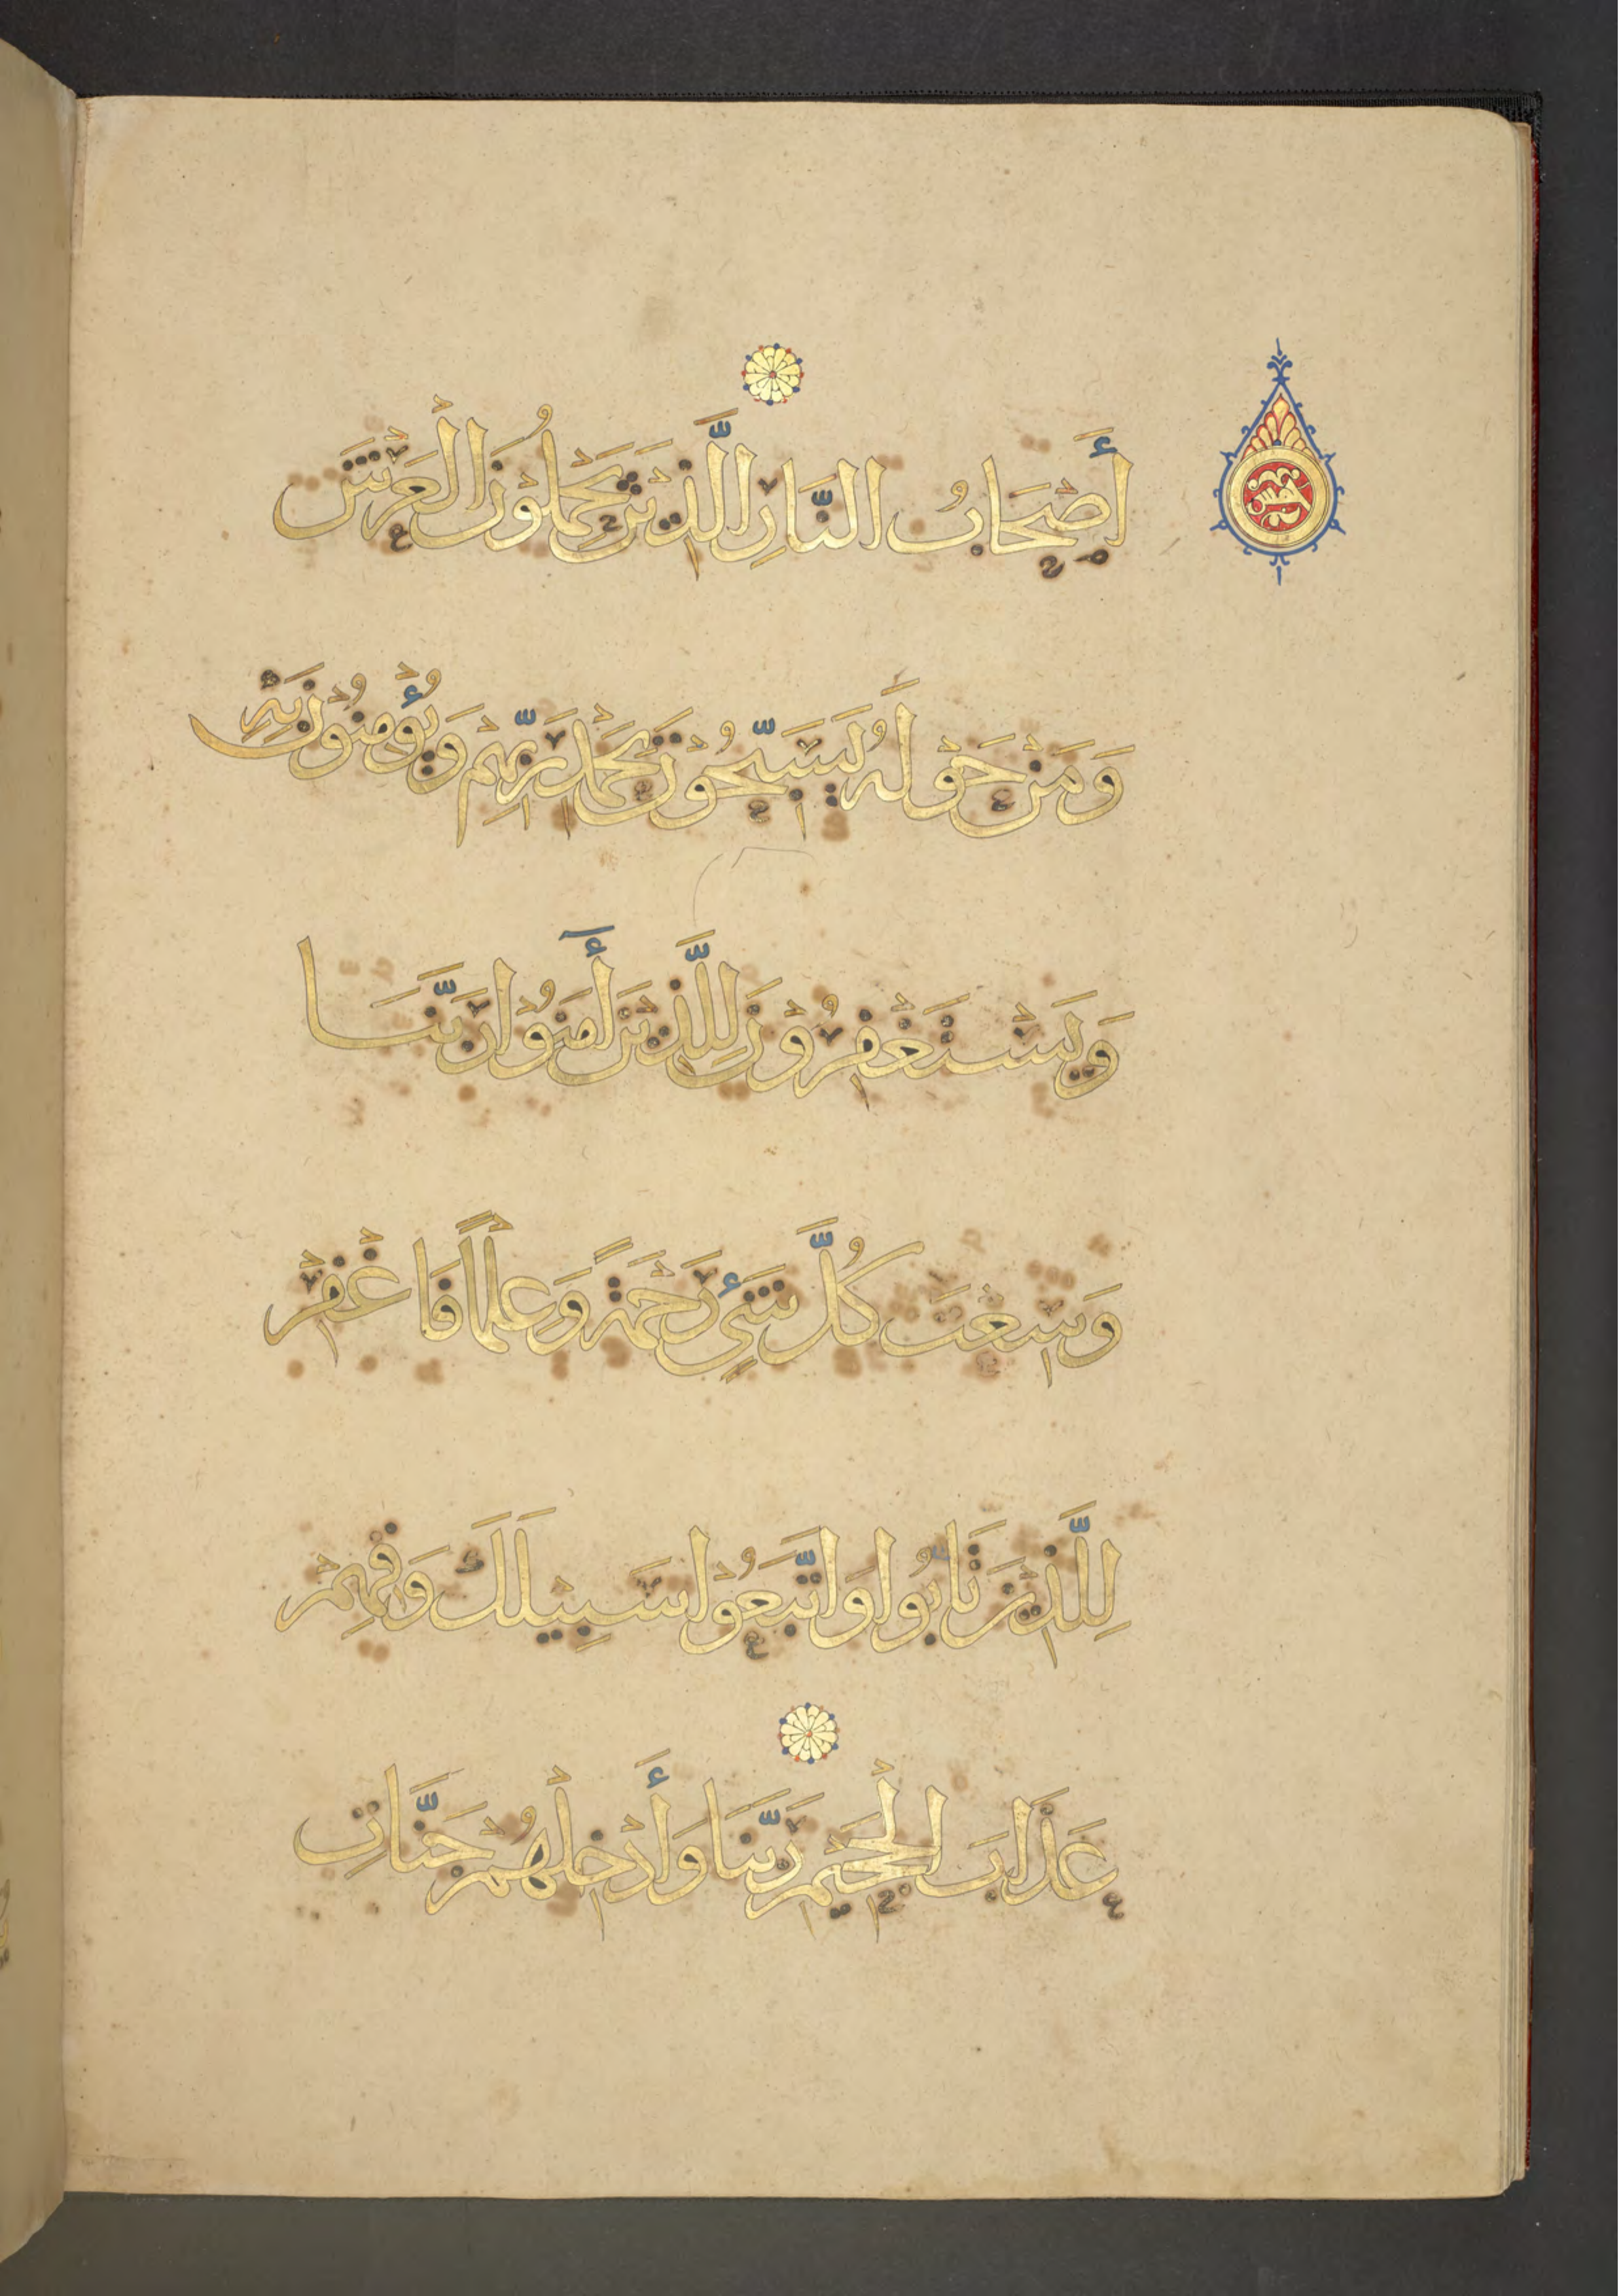 أَصْحَابُ النَّارِ الَّذِينَ يَحْمِلُوْنَ الْعَرْشَ
وَمَنْ حَوْلَهُ يُسَبِّحُوْنَ بِحَمْدِ رَبِّهِمْ وَيُؤْمِنُوْنَ بِهِ
وَيَسْتَغْفِرُوْنَ لِلَّذِيْنَ أٓمَنُوْا رَبَّنَا
وَسِعْتَ كُلَّ شَيْءٍ رَحْمَةً وَعِلْمًا فَاغْفِرْ
لِلَّذِيْنَ تَابُوا وَاتَّبَعُوْا سَبِيْلَكَ وَقِهِمْ
عَذَابَ الْجَحِيْمِ رَبَّنَا وَأَدْخِلْهُمْ جَنَّاتِ